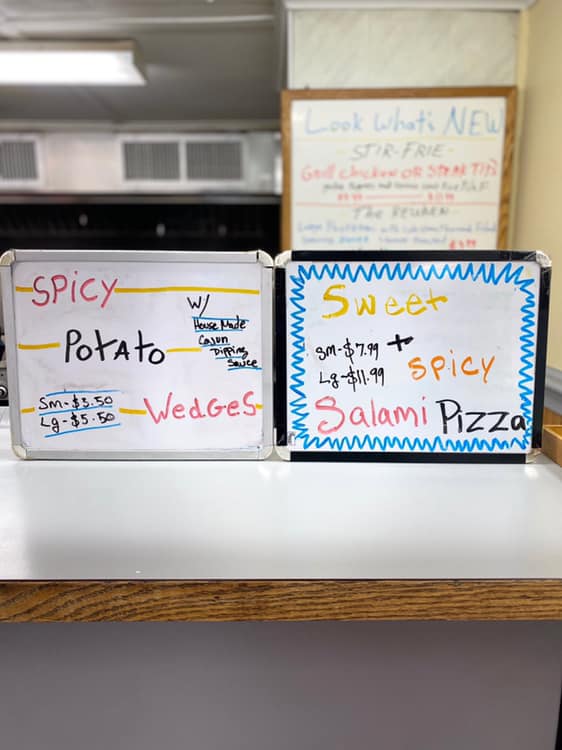 Look What's NEW
-STIR-FRIE-
Grill chicken OR STEAK TIPS
The REUBEN
SPICY
W/
House Made
Cajun
Dipping
Sauce
Potato
Sm-$3.50
Lg-$5.50
WedGeS
Sweet
+
Sm-$7.99
Lg-$11.99
SPICY
Salami Pizza